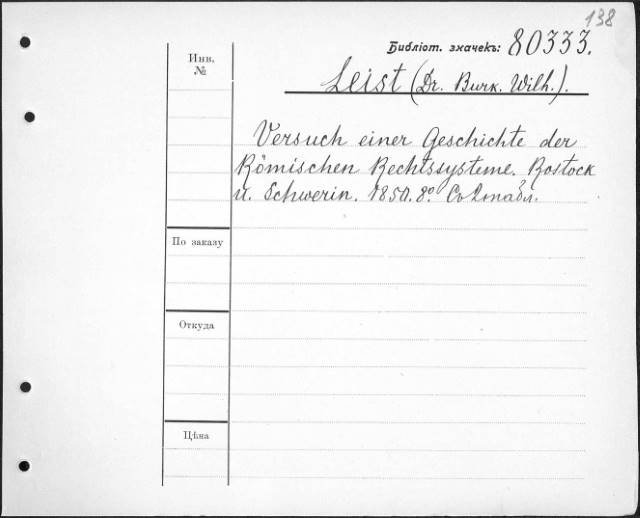 138
Библіот. значекъ: 80333.
Инв.
№
Leist (Dr. Burk. Wilh.).
Versuch einer Geschichte der
Römischen Rechtssysteme. Rostock
u. Schwerin. 1850. 8º. Со 2 табл.
По заказу
Откуда
Цѣна